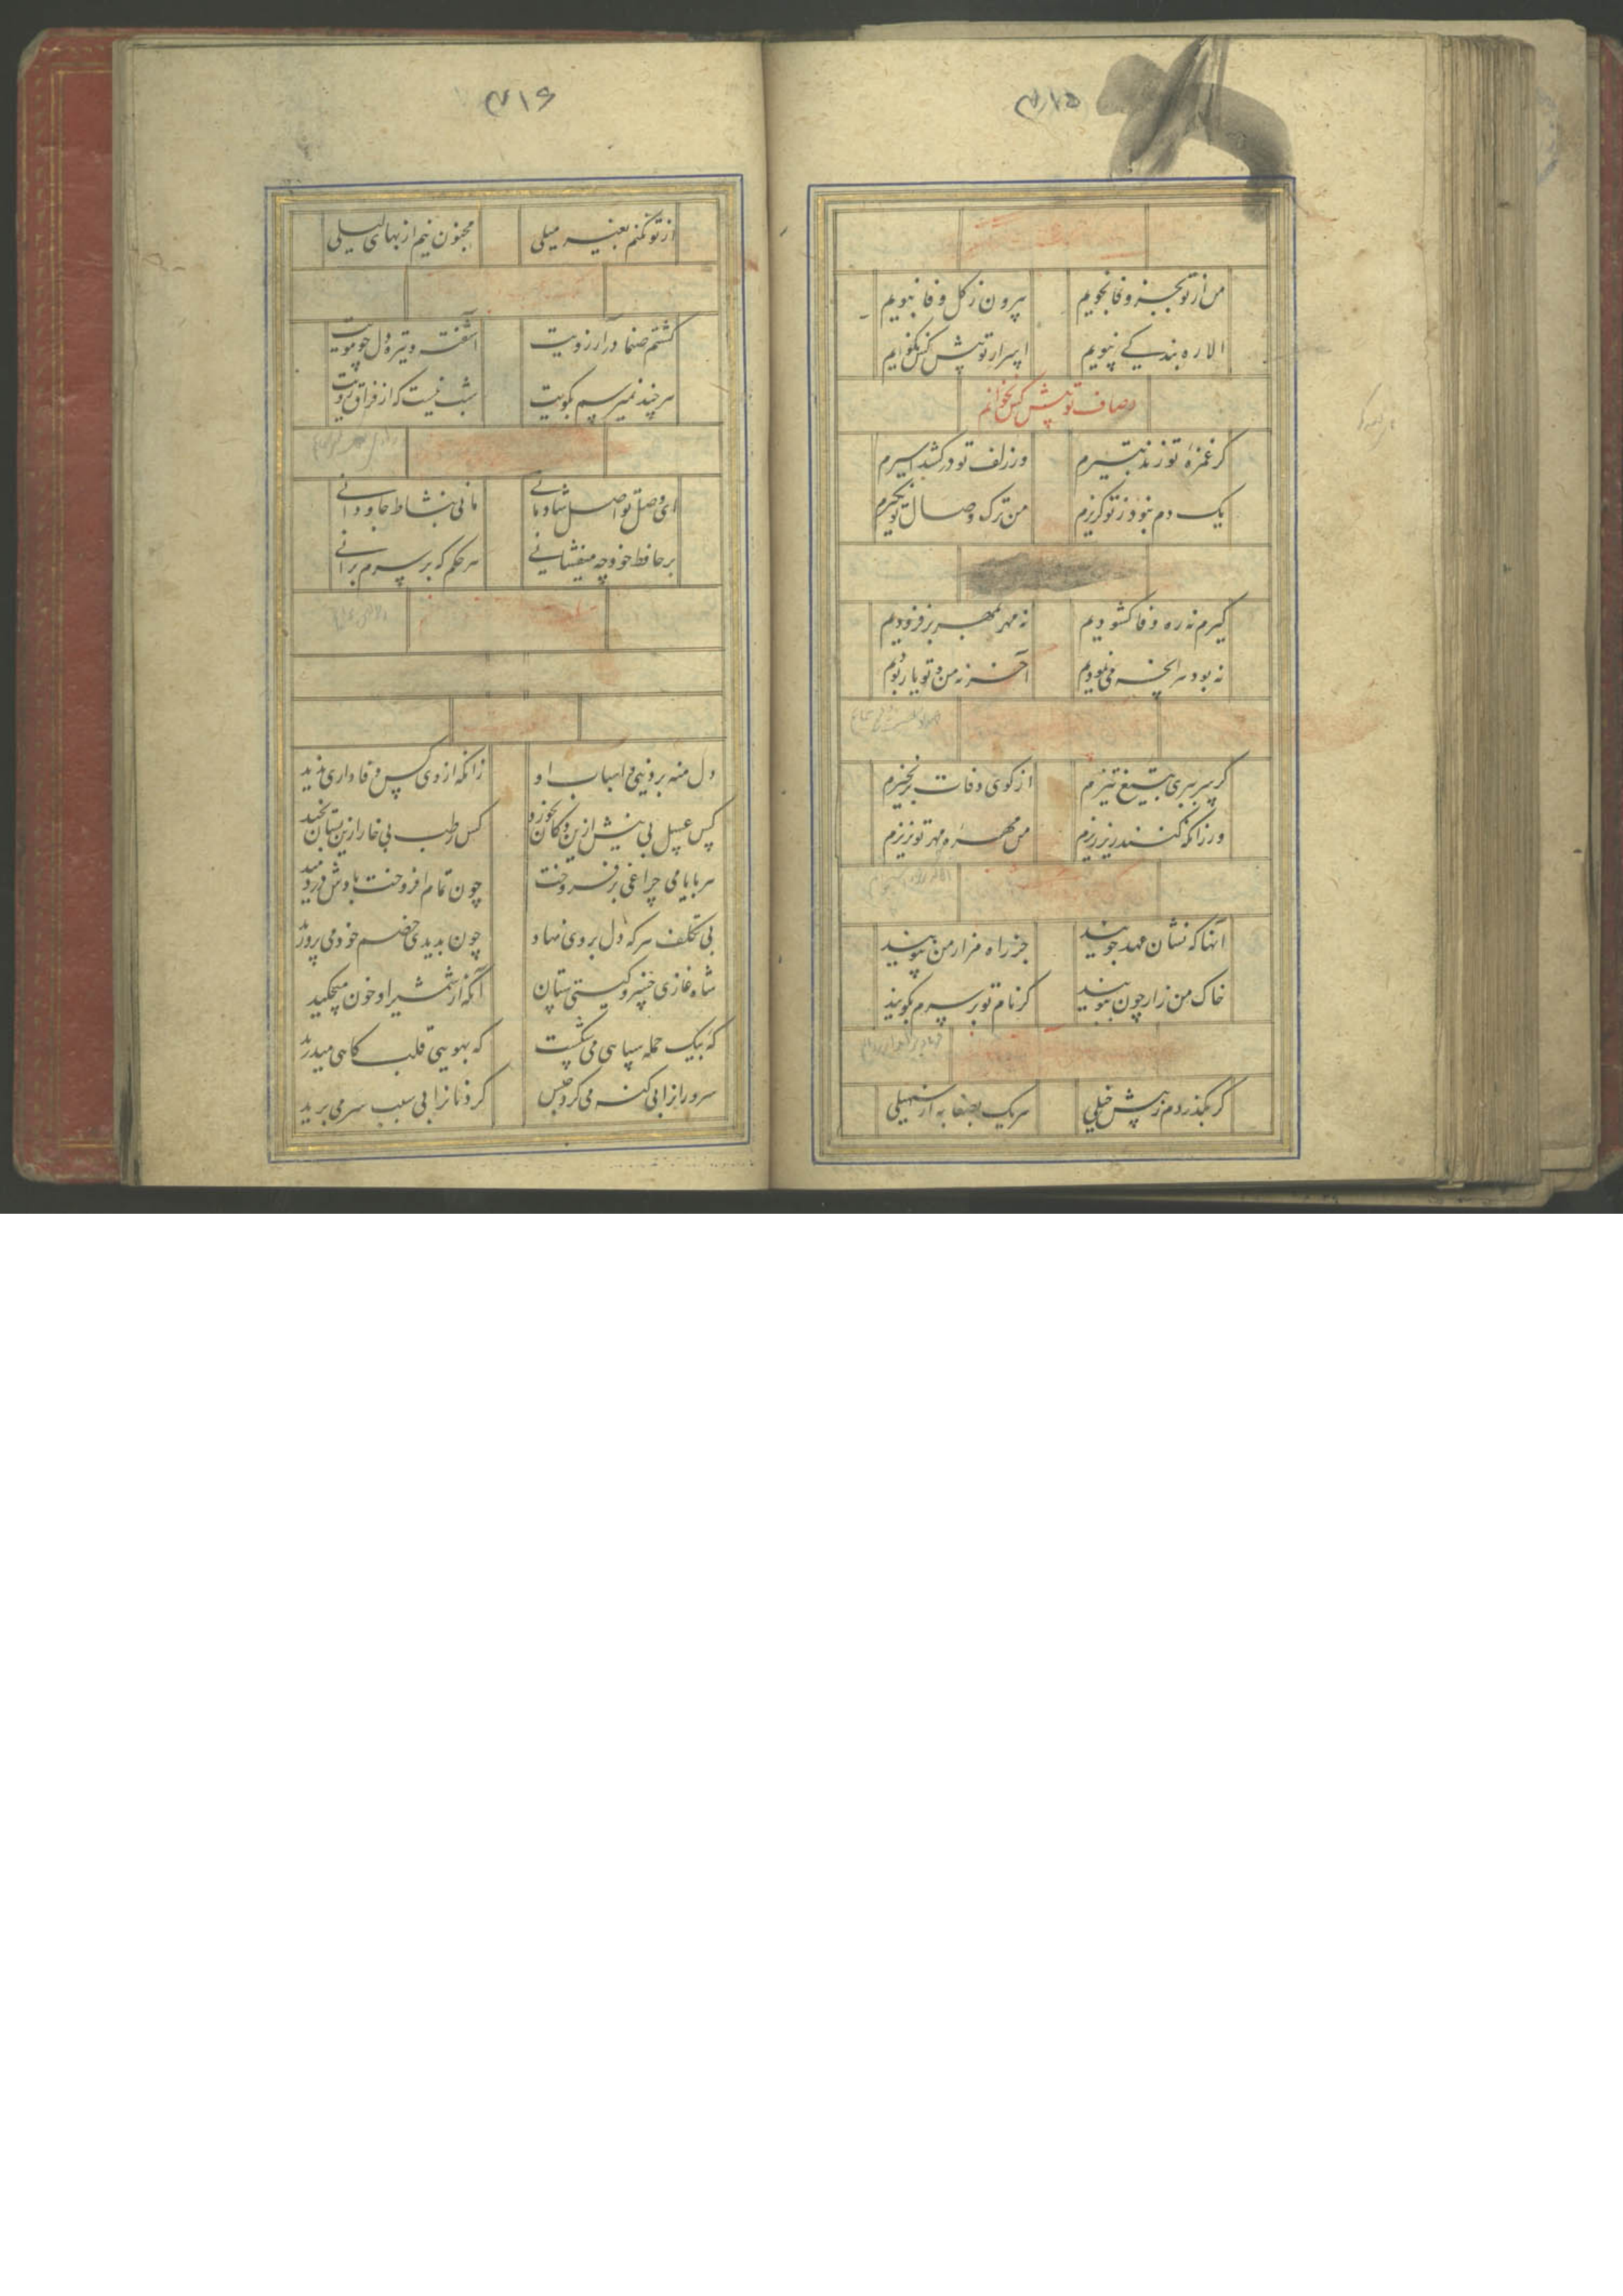 ۴۱۵
من از تو بجز وفا نجویم بیرون ز کل وفا نبویم
الا ره بندکی نپویم اسرار تو پیش کس نکویم
اوصاف تو پیش کس نخوانم
کر غمزهٔ تو زند بتیرم ور زلف تو در کشد اسیرم
یک دم نبود ز تو کزیرم من ترک وصال تو نکیرم
کیرم نه ره وفا کشودیم نه مهر بمهر بر فزودیم
نه بود هر انچه می نمودیم آخر نه من و تو یار بودیم
کر سر ببری بتیغ تیزم از کوی وفات بر نخیزم
ور زانکه کنند ریز ریزم من مهرهٔ مهر تو نریزم
آنها که نشان عهد جویند جز راه مزار من نپویند
خاک من زار چون ببویند کر نام تو بر سرم بکویند
کر بکذردم ز پیش خیلی هر یک بصفا به از سهیلی
۴۱۶
از تو نکنم بغیر میلی مجنون نیم از بهای لیلی
کشتم صنما در آرزویت آشفته و تیره دل چو مویت
هر چند نمیرسم بکویت شب نیست که از فراق رویت
ای وصل تو اصل شادمانی مانی بنشاط جاودانی
بر حافظ خود چه میفشانی هر حکم که بر سرم برانی
دل منه بر دنیی و اسباب او زانکه از وی کس وفاداری ندید
کس عسل بی نیش ازین دکان نخورد کس رطب بی خار ازین بستان نچید
هر بایامی چراغی بر فروخت چون تمام افروخت بادش در دمید
بی تکلف هر که دل بر وی نهاد چون بدیدی خصم خود می پرورید
شاه غازی خسرو کیتی ستان آنکه از شمشیر او خون میچکید
که بیک حمله سپاهی می شکست که بهویی قلب کاهی میدرید
سرورانرا بی کنه می کرد حبس کردنانرا بی سبب سر می برید